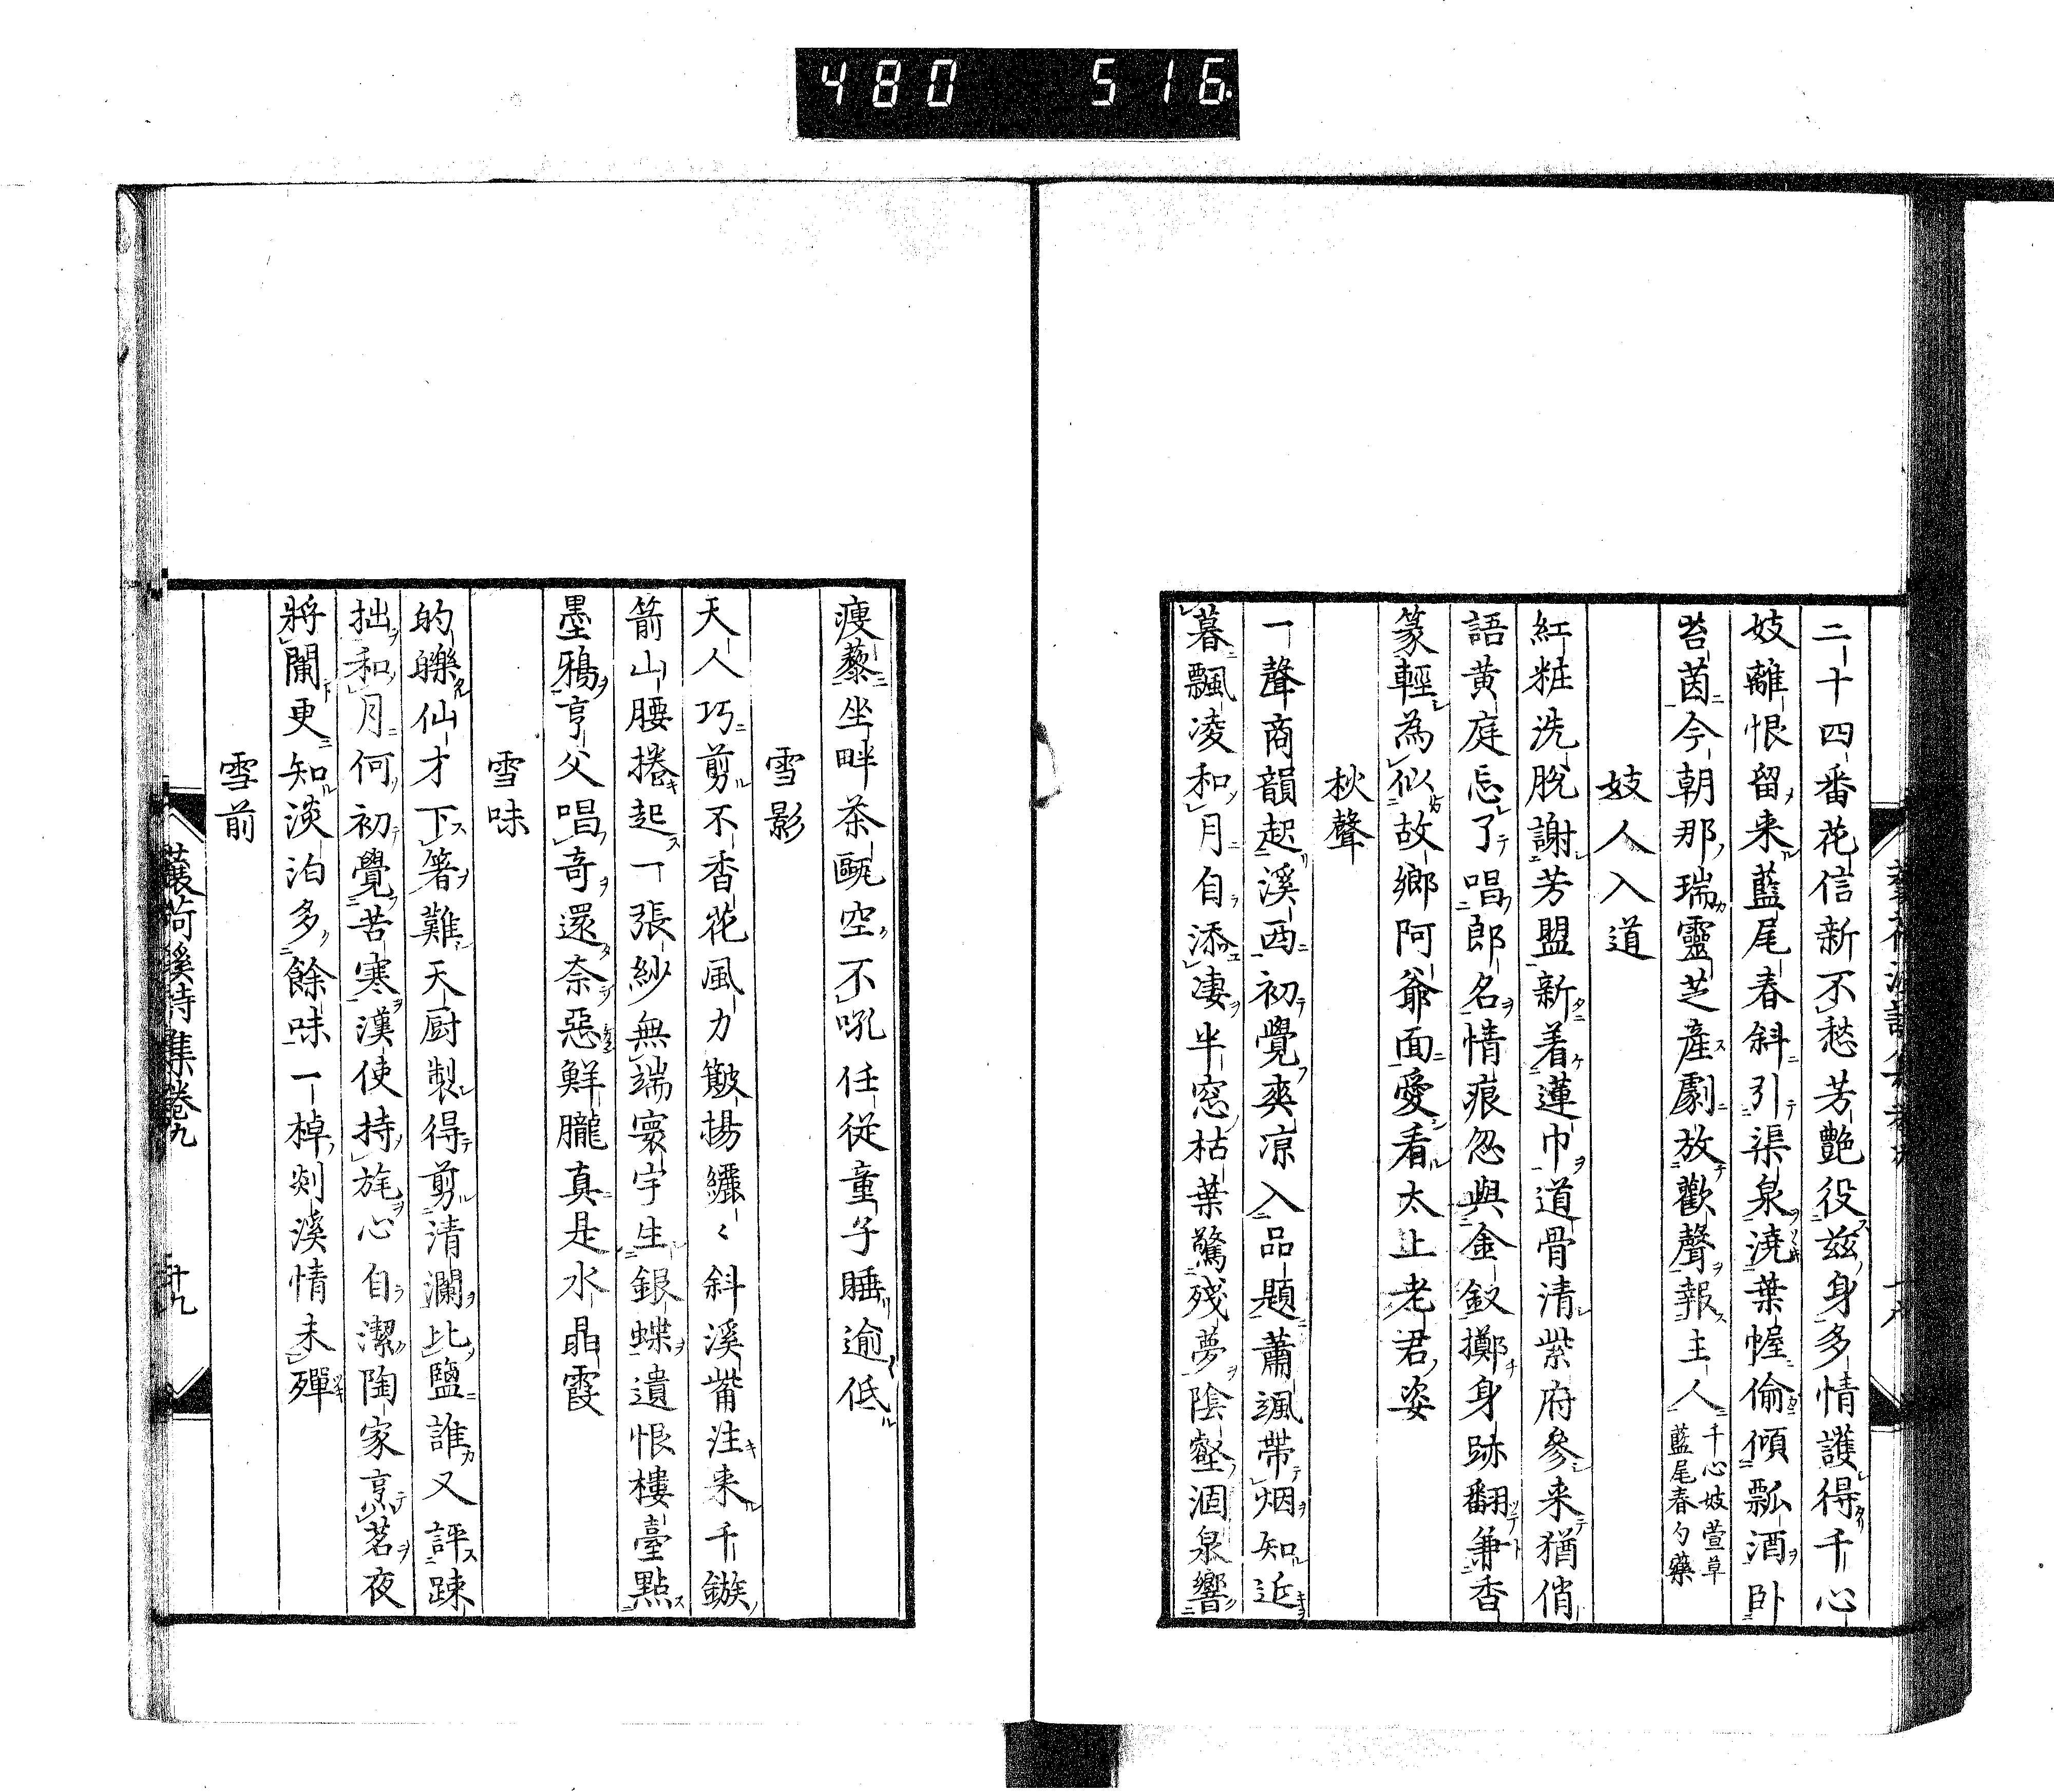 480 516
二十四番花信新不愁芳艶役玆身多情護得千心
妓離恨留来藍尾春斜引渠泉澆葉幄偷傾瓢酒卧
苔茵今朝那瑞靈芝產劇放歡聲報主人 千心妓萱草
藍尾春勺藥
妓人入道
紅粧洗脫謝芳盟新着蓮巾道骨清紫府參来猶俏
語黄庭忘了唱郎名情痕忽與金釵擲身跡翻兼香
篆輕為似故鄉阿爺面愛看太上老君姿
秋聲
一聲商韻起溪西初覺爽凉入品題蕭颯帶烟知近
暮飄凌和月自添凄半窓枯葉驚殘夢陰壑涸泉響
瘦藜坐畔茶甌空不吼任從童子睡逾低
雪影
天人巧剪不香花風力簸揚繼〻斜溪嘴注来千鏃
箭山腰捲起一張紗無端寰宇生銀蝶遺恨樓臺點
墨鴉亨父唱奇還奈惡鮮朧真是水晶霞
雪味
的皪仙才下箸難天厨製得剪清瀾比鹽誰又評踈
拙和月何初覺苦寒漢使持旄心自潔陶家烹茗夜
將闌更知淡泊多餘味一棹剡溪情未殫
雪前
蘘荷溪詩集卷九 十九